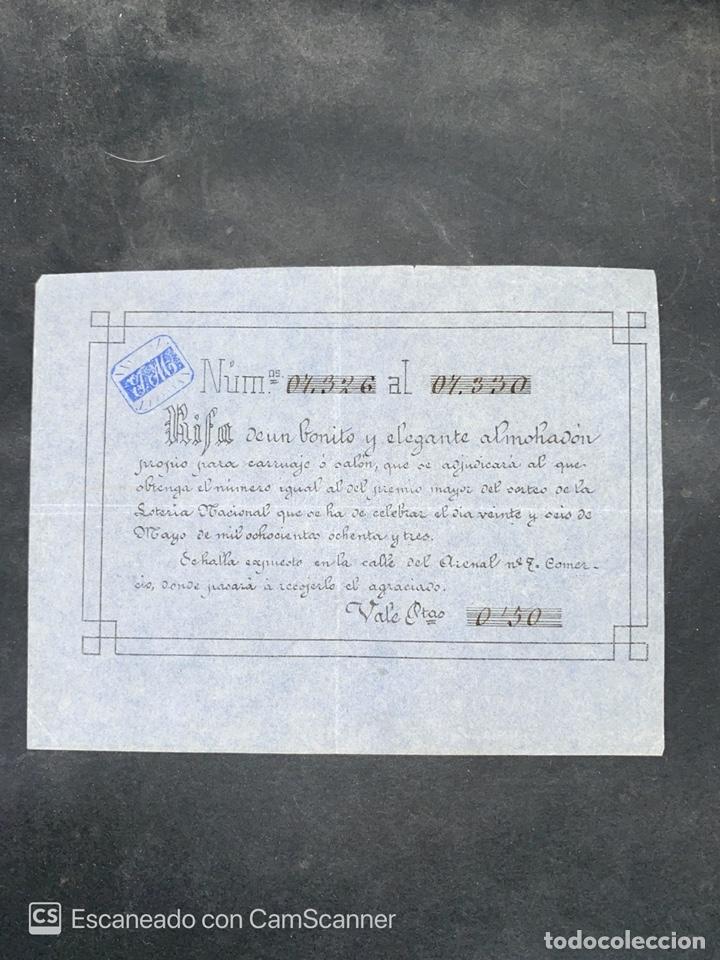 Núm.os 07.326 al 07.330
Rifa de un bonito y elegante almohadón
propio para carruaje ó salón, que se adjudicará al que
obtenga el número igual al del premio mayor del sorteo de la
Lotería Nacional que se ha de celebrar el dia veinte y seis de
Mayo de mil ochocientos ochenta y tres.
Se halla expuesto en la calle del Arenal nº 7. Comer-
cio, donde pasará á recojerlo el agraciado.
Vale Ptas 0'50
CS Escaneado con CamScanner
todocoleccion